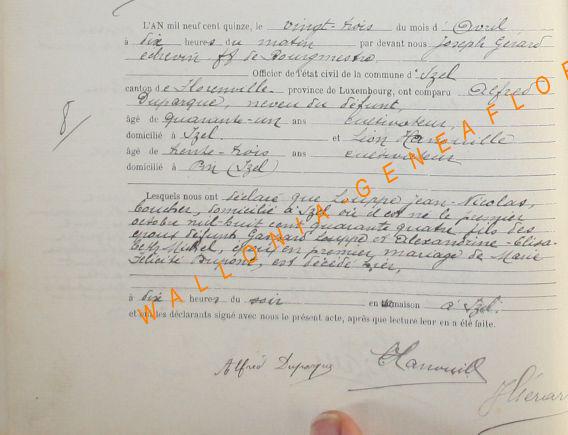 L'AN mil neuf cent quinze, le vingt-trois du mois d'Avril
à dix heures du matin par devant nous Joseph Gérard
échevin ff de Bourgmestre,
Officier de l'état civil de la commune d'Izel
canton de Florenville province de Luxembourg, ont comparu Alfred
Duparque, neveu du défunt,
âgé de quarante-un ans cultivateur,
domicilié à Izel et Léon Hanouille
âgé de trente-trois ans cultivateur
domicilié à Pin (Izel)
8/
Lesquels nous ont déclaré que Louppe Jean-Nicolas,
boucher, domicilié à Izel où il est né le premier
octobre mil huit cent quarante quatre fils des
époux défunts Louppe et Alexandrine-Elisa-
beth époux en premier mariage de Marie
Félicité Dupont, est décédé hier,
à dix heures du soir en sa maison à Izel.
et ont les déclarants signé avec nous le présent acte, après que lecture leur en a été faite.
Alfred Duparque
LHanouill
JGérard
WALLONIA.GENEAFLOR